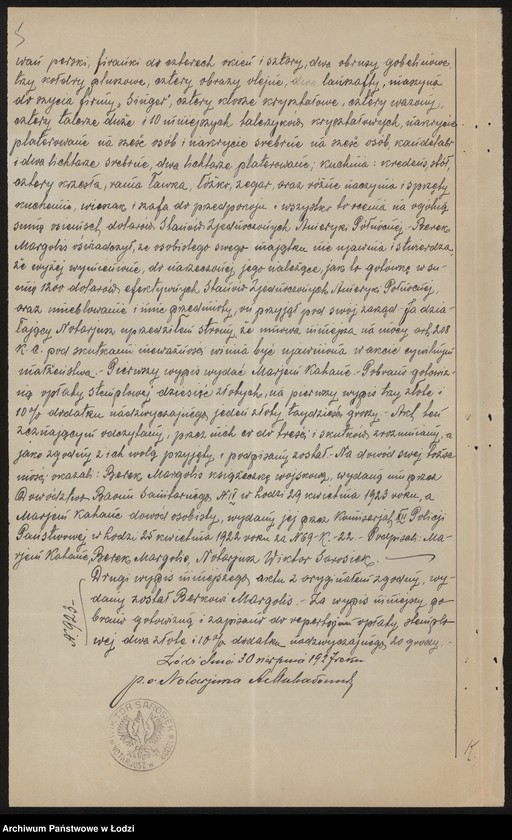 wan perski, firanki do czterech okien i sztory, dwa obrusy gobelinowe,
trzy kołdry pluszowe, cztery obrazy olejne, dwa landszafty, maszyna
do szycia firmy "Singer", cztery klosze kryształowe, cztery wazony,
cztery talerze duże i 10 mniejszych talerzyków kryształowych, nakrycie
platerowane na sześć osób i nakrycie srebrne na sześć osób, kandelabr
i dwa lichtarze srebrne, dwa lichtarze platerowane; kuchnia: kredens, stół,
cztery krzesła, ławka, łóżko, zegar, oraz różne naczynia i sprzęty
kuchenne, wieszak i szafa do przedpokoju i wszystko to ocenia na ogólną
sumę dolarów Stanów Zjednoczonych Ameryki Północnej.- Berek
Margolis oświadczył, że osobistego swego majątku nie ujawnia i stwierdza,
że wyżej wymienione, do narzeczonej jego należące, jak to gotówkę w su-
mie 1200 dolarów efektywnych Stanów Zjednoczonych Ameryki Północnej,
oraz umeblowanie i inne przedmioty, on przyjął pod swój zarząd.- Ja dzia-
łający Notarjusz uprzedziłem strony, że umowa niniejsza na mocy art. 208
K. C. pod skutkami nieważności winna być ujawniona w akcie cywilnym
małżeństwa.- Pierwszy wypis wydać Marjem Kahane.- Pobrano gotowiz-
ną opłaty stemplowej dziesięć złotych, na pierwszy wypis trzy złote i
10% dodatku nadzwyczajnego jeden złoty trzydzieści groszy.- Akt ten
zeznającym odczytany, przez nich co do treści i skutków zrozumiany, a
jako zgodny z ich wolą przyjęty i podpisany został.- Na dowód swej tożsa-
mości okazali: Berek Margolis książeczkę wojskową, wydaną mu przez
Dowództwo Baonu Sanitarnego N. IV w Łodzi 29 kwietnia 1923 roku, a
Marjem Kahane dowód osobisty, wydany jej przez Komisarjat XII Policji
Państwowej w Łodzi 25 kwietnia 1922 roku za N 69-K.-22.- Podpisali: Ma-
rjem Kahane, Berek Margolis, Notarjusz Wiktor Sarosiek.-
Drugi wypis niniejszego aktu z oryginałem zgodny, wy-
dany został Berkowi Margolis.- Za wypis niniejszy po-
brano gotowizną i zapisano do repertorjum opłaty stemplo-
wej dwa złote i 10% dodatku nadzwyczajnego 20 groszy.-
N 923.
Łódź dnia 30 sierpnia 1927 roku
p.o. Notarjusza
WIKTOR SAROSIEK
NOTARJUSZ W ŁODZI
K.
Archiwum Państwowe w Łodzi